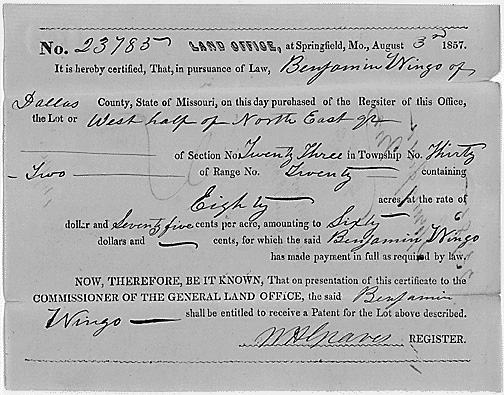 No. 23785 LAND OFFICE, at Springfield, Mo., August 3rd 1857.
It is hereby certified, That, in pursuance of Law, Benjamin Wingo of
Dallas County, State of Missouri, on this day purchased of the Regsiter of this Office,
the Lot or West half of North East qr
of Section No. Twenty Three in Township No. Thirty
- Two of Range No. Twenty containing
Eighty acres, at the rate of
dollar and Seventy five cents per acre, amounting to Sixty
dollars and — cents, for which the said Benjamin Wingo
has made payment in full as required by law.
NOW, THEREFORE, BE IT KNOWN, That on presentation of this certificate to the
COMMISSIONER OF THE GENERAL LAND OFFICE, the said Benjamin
Wingo — shall be entitled to receive a Patent for the Lot above described.
Graves REGISTER.